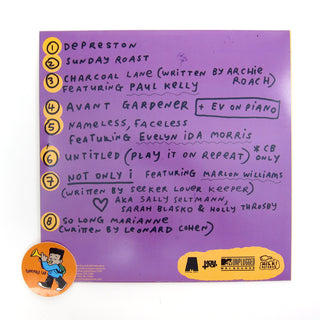 1 DEPRESTON
2 SUNDAY ROAST
3 CHARCOAL LANE (WRITTEN BY ARCHIE
ROACH)
FEATURING PAUL KELLY
4 AVANT GARDENER + EV ON PIANO
5 NAMELESS, FACELESS
FEATURING EVELYN IDA MORRIS
6 UNTITLED (PLAY IT ON REPEAT) * CB
ONLY
7 NOT ONLY i FEATURING MARLON WILLIAMS
(WRITTEN BY SEEKER LOVER KEEPER)
AKA SALLY SELTMANN,
SARAH BLASKO & HOLLY THROSBY
8 SO LONG MARIANNE
(WRITTEN BY LEONARD COHEN)
MTV UNPLUGGED
MELBOURNE
MILK!
RECORDS